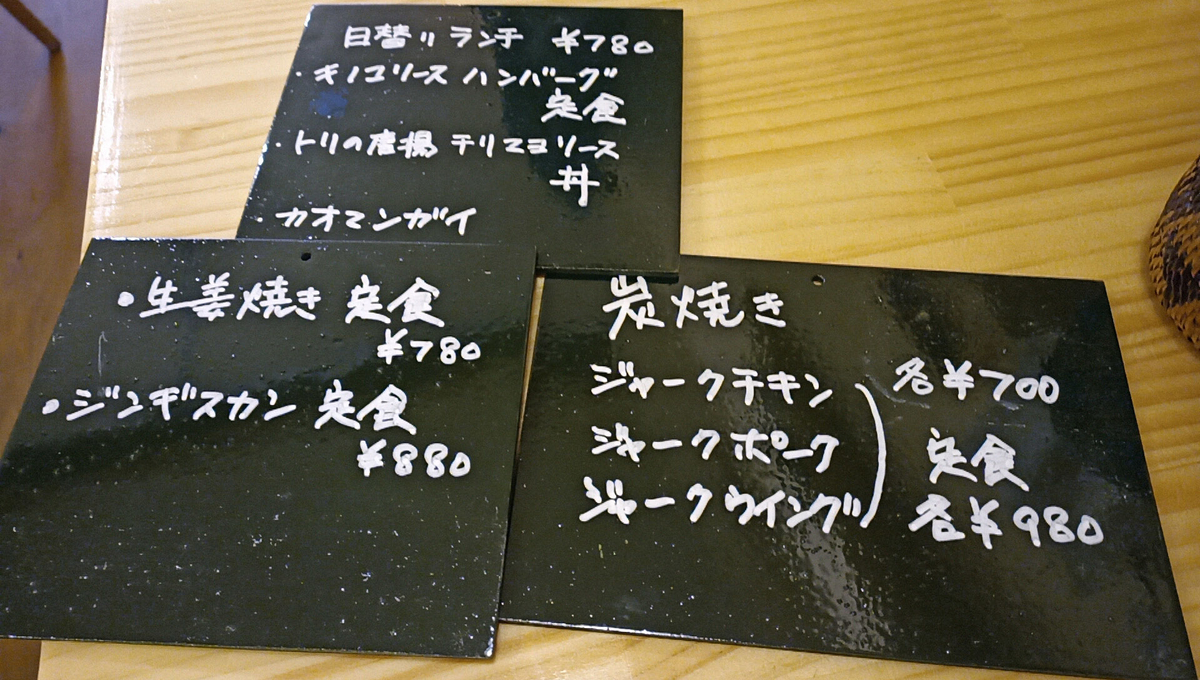 日替りランチ ¥780
・キノコソース ハンバーグ
定食
・トリの唐揚 チリマヨソース
丼
・カオマンガイ
・生姜焼き 定食
¥780
・ジンギスカン 定食
¥880
炭焼き
ジャークチキン 各¥700
ジャークポーク 定食
ジャークウイング 各¥980